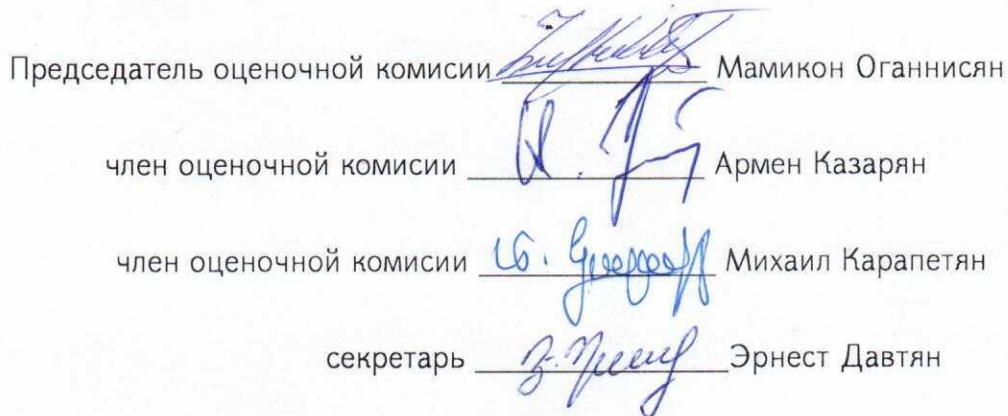 Председатель оценочной комисии Мамикон Оганнисян
член оценочной комисии Армен Казарян
член оценочной комисии Михаил Карапетян
секретарь Эрнест Давтян